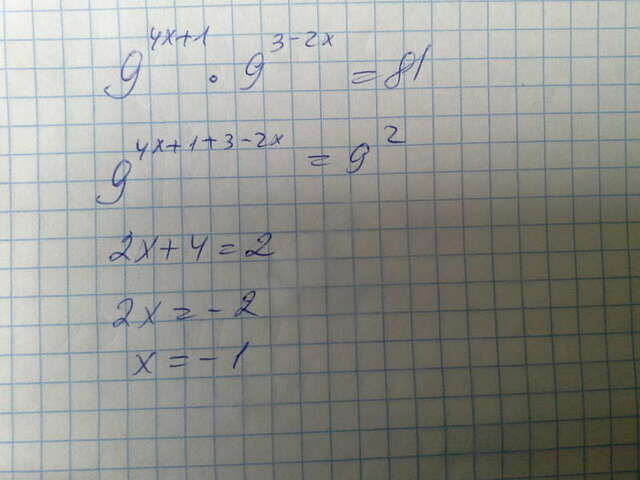 9^{4x+1} · 9^{3-2x} = 81
9^{4x+1+3-2x} = 9^2
2x+4=2
2x=-2
x=-1